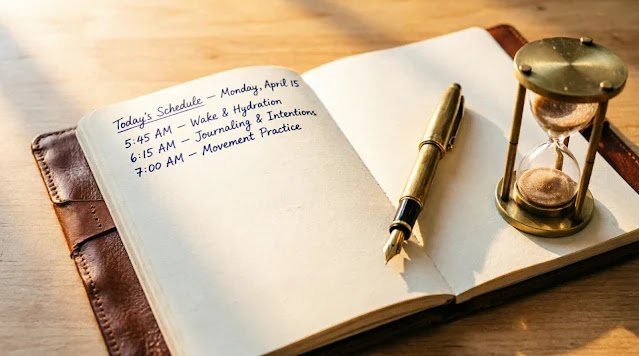 Today's Schedule — Monday, April 15
5:45 AM — Wake & Hydration
6:15 AM — Journaling & Intentions
7:00 AM — Movement Practice